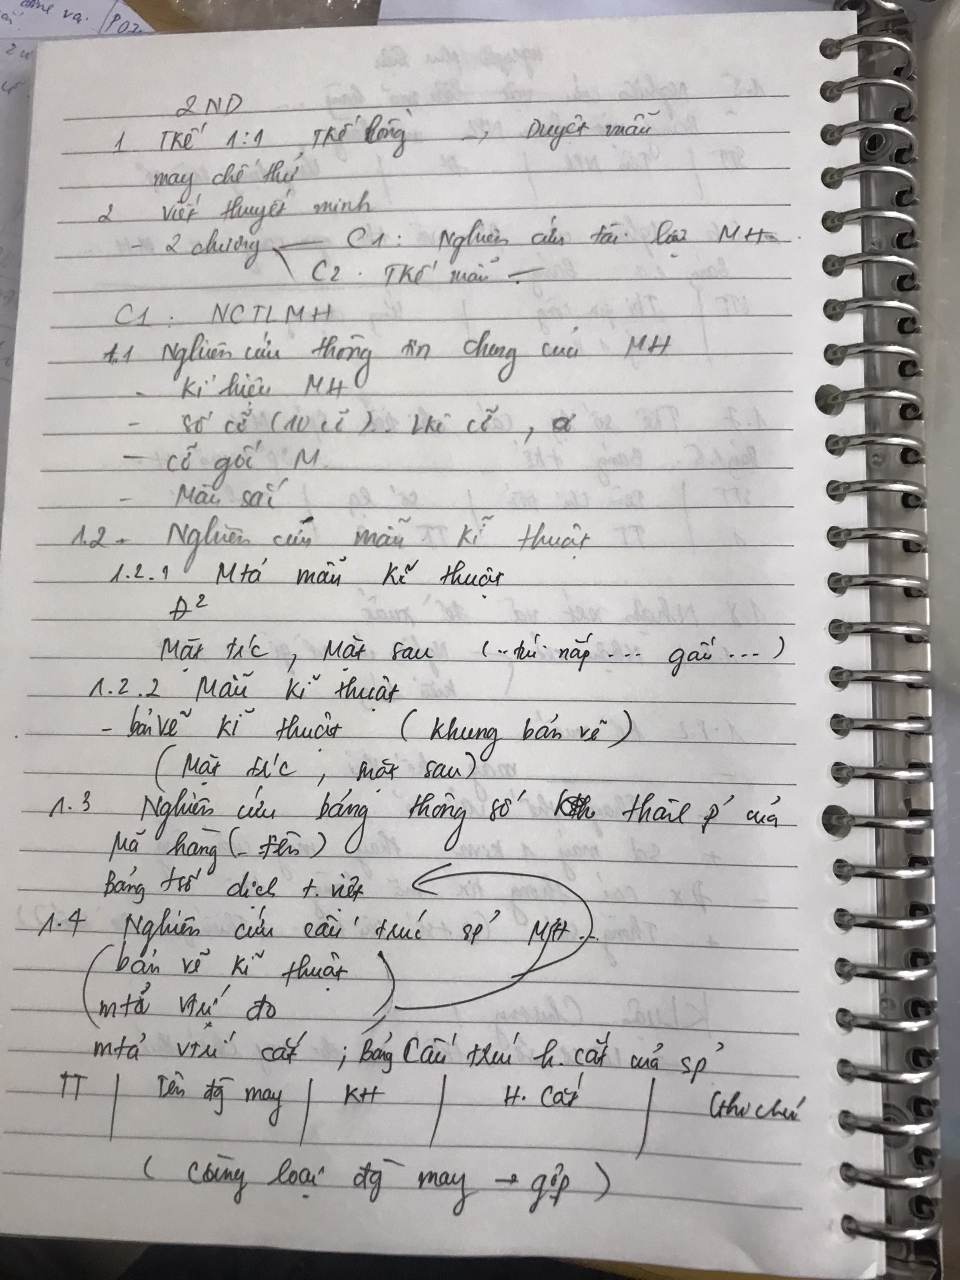 2ND
1 TKế 1:1, TKế , Duyệt mẫu
may chế thử
2 viết thuyết minh
- 2 chương — C1: Nghiên cứu tài MH
C2. TKế mẫu —
C1: NCTLMH
1.1 Nghiên cứu thông tin chung của MH
- Kí hiệu MH
- Số cỡ (10 cỡ). Lkê cỡ,
- cỡ gốc M.
- Màu sắc
1.2 - Nghiên cứu mẫu kĩ thuật
1.2.1 Mtả mẫu kĩ thuật
Đ²
Mặt trc, Mặt sau (.. túi nắp ... gấu ...)
1.2.2 Mẫu kĩ thuật
- bản vẽ kĩ thuật (khung bản vẽ)
(Mặt trc, mặt sau)
1.3 Nghiên cứu bảng thông số p² của
Mã hàng (- tên)
Bảng t số dịch t. việt
1.4 Nghiên cứu cấu trúc sp MH..
(bản vẽ kĩ thuật
mtả vtrí đo)
mtả vtrí cắt ; Bảng Cấu trúc h.cắt của sp
TT | Tên đg may | KH | H. Cắt | Ghi chú
(Cùng loại đg may → gộp)